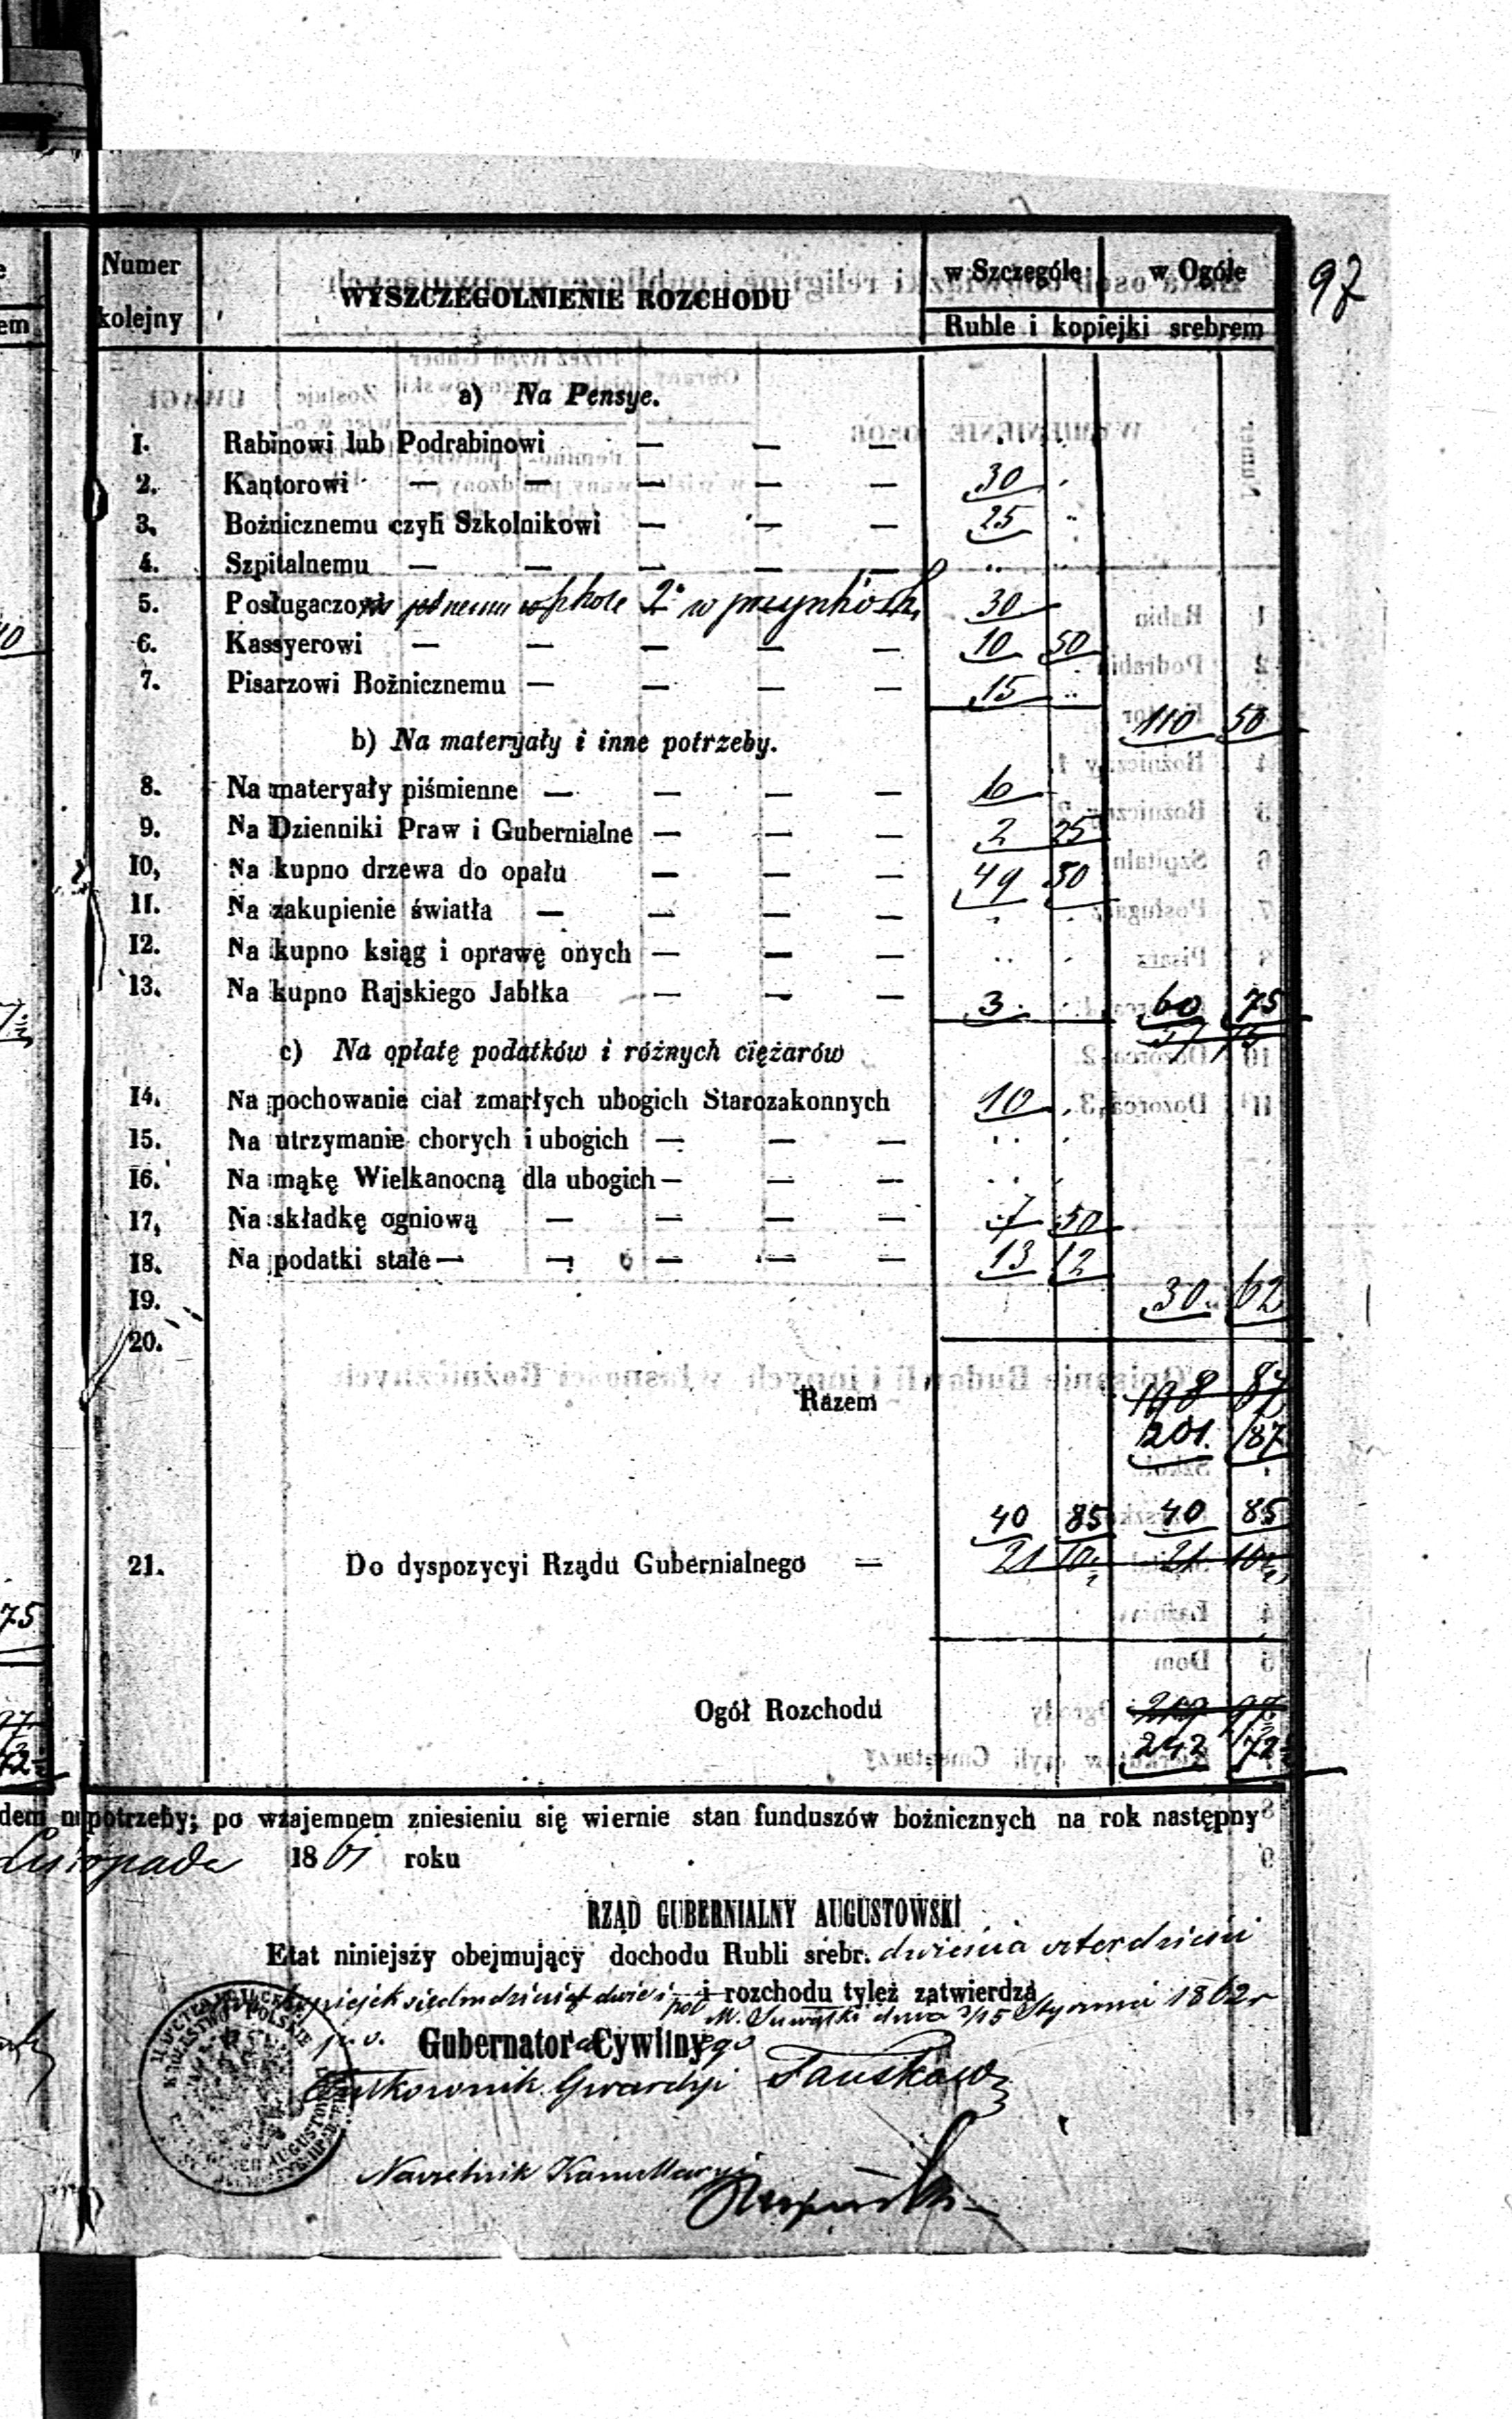 97
Numer kolejny
WYSZCZEGOLNIENIE ROZCHODU
w Szczególe w Ogóle
Ruble i kopiejki srebrem
a) Na Pensye.
1. Rabinowi lub Podrabinowi — — —
2. Kantorowi — — — — — 30
3. Bożnicznemu czyli Szkolnikowi — — — 25
4. Szpitalnemu — — — — —
5. Posługaczowi jednemu w szkole 2° w 30
6. Kassyerowi — — — — — 10 50
7. Pisarzowi Bożnicznemu — — — — 15
110 50
b) Na materyały i inne potrzeby.
8. Na materyały piśmienne — — — — 6
9. Na Dzienniki Praw i Gubernialne — — — 2 25
10. Na kupno drzewa do opału — — — 49 50
11. Na zakupienie światła — — — —
12. Na kupno ksiąg i oprawę onych — — —
13. Na kupno Rajskiego Jabłka — — — 3 60 75
c) Na opłatę podatków i różnych ciężarów
14. Na pochowanie ciał zmarłych ubogich Starozakonnych 10
15. Na utrzymanie chorych i ubogich — — —
16. Na mąkę Wielkanocną dla ubogich — — —
17. Na składkę ogniową — — — — 7 50
18. Na podatki stałe — — — — — 13 12
19. 30 62
20.
Razem 198 87
201 87
40 85 40 85
21. Do dyspozycyi Rządu Gubernialnego — 21 10 21 10
Ogół Rozchodu 219 97
242 72
potrzeby; po wzajemnem zniesieniu się wiernie stan funduszów bożnicznych na rok następny
Listopada 1861 roku
RZĄD GUBERNIALNY AUGUSTOWSKI
Etat niniejszy obejmujący dochodu Rubli srebr. dwieście czterdzieści
kopiejek siedmdziesiąt dwie i pół i rozchodu tyleż zatwierdza
M. Suwałki dnia 3/15 Stycznia 1862 r
p. o. Gubernatora Cywilnego
Pułkownik Gwardyi
Naczelnik Kancellaryi